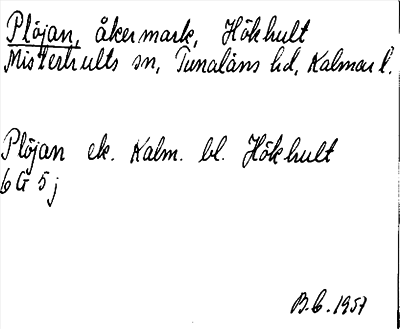 Plöjan, åkermark, Hökhult
Misterhults sn, Tunaläns hd, Kalmar l.
Plöjan ek. Kalm. bl. Hökhult
6 G 5 j
B.C. 1957